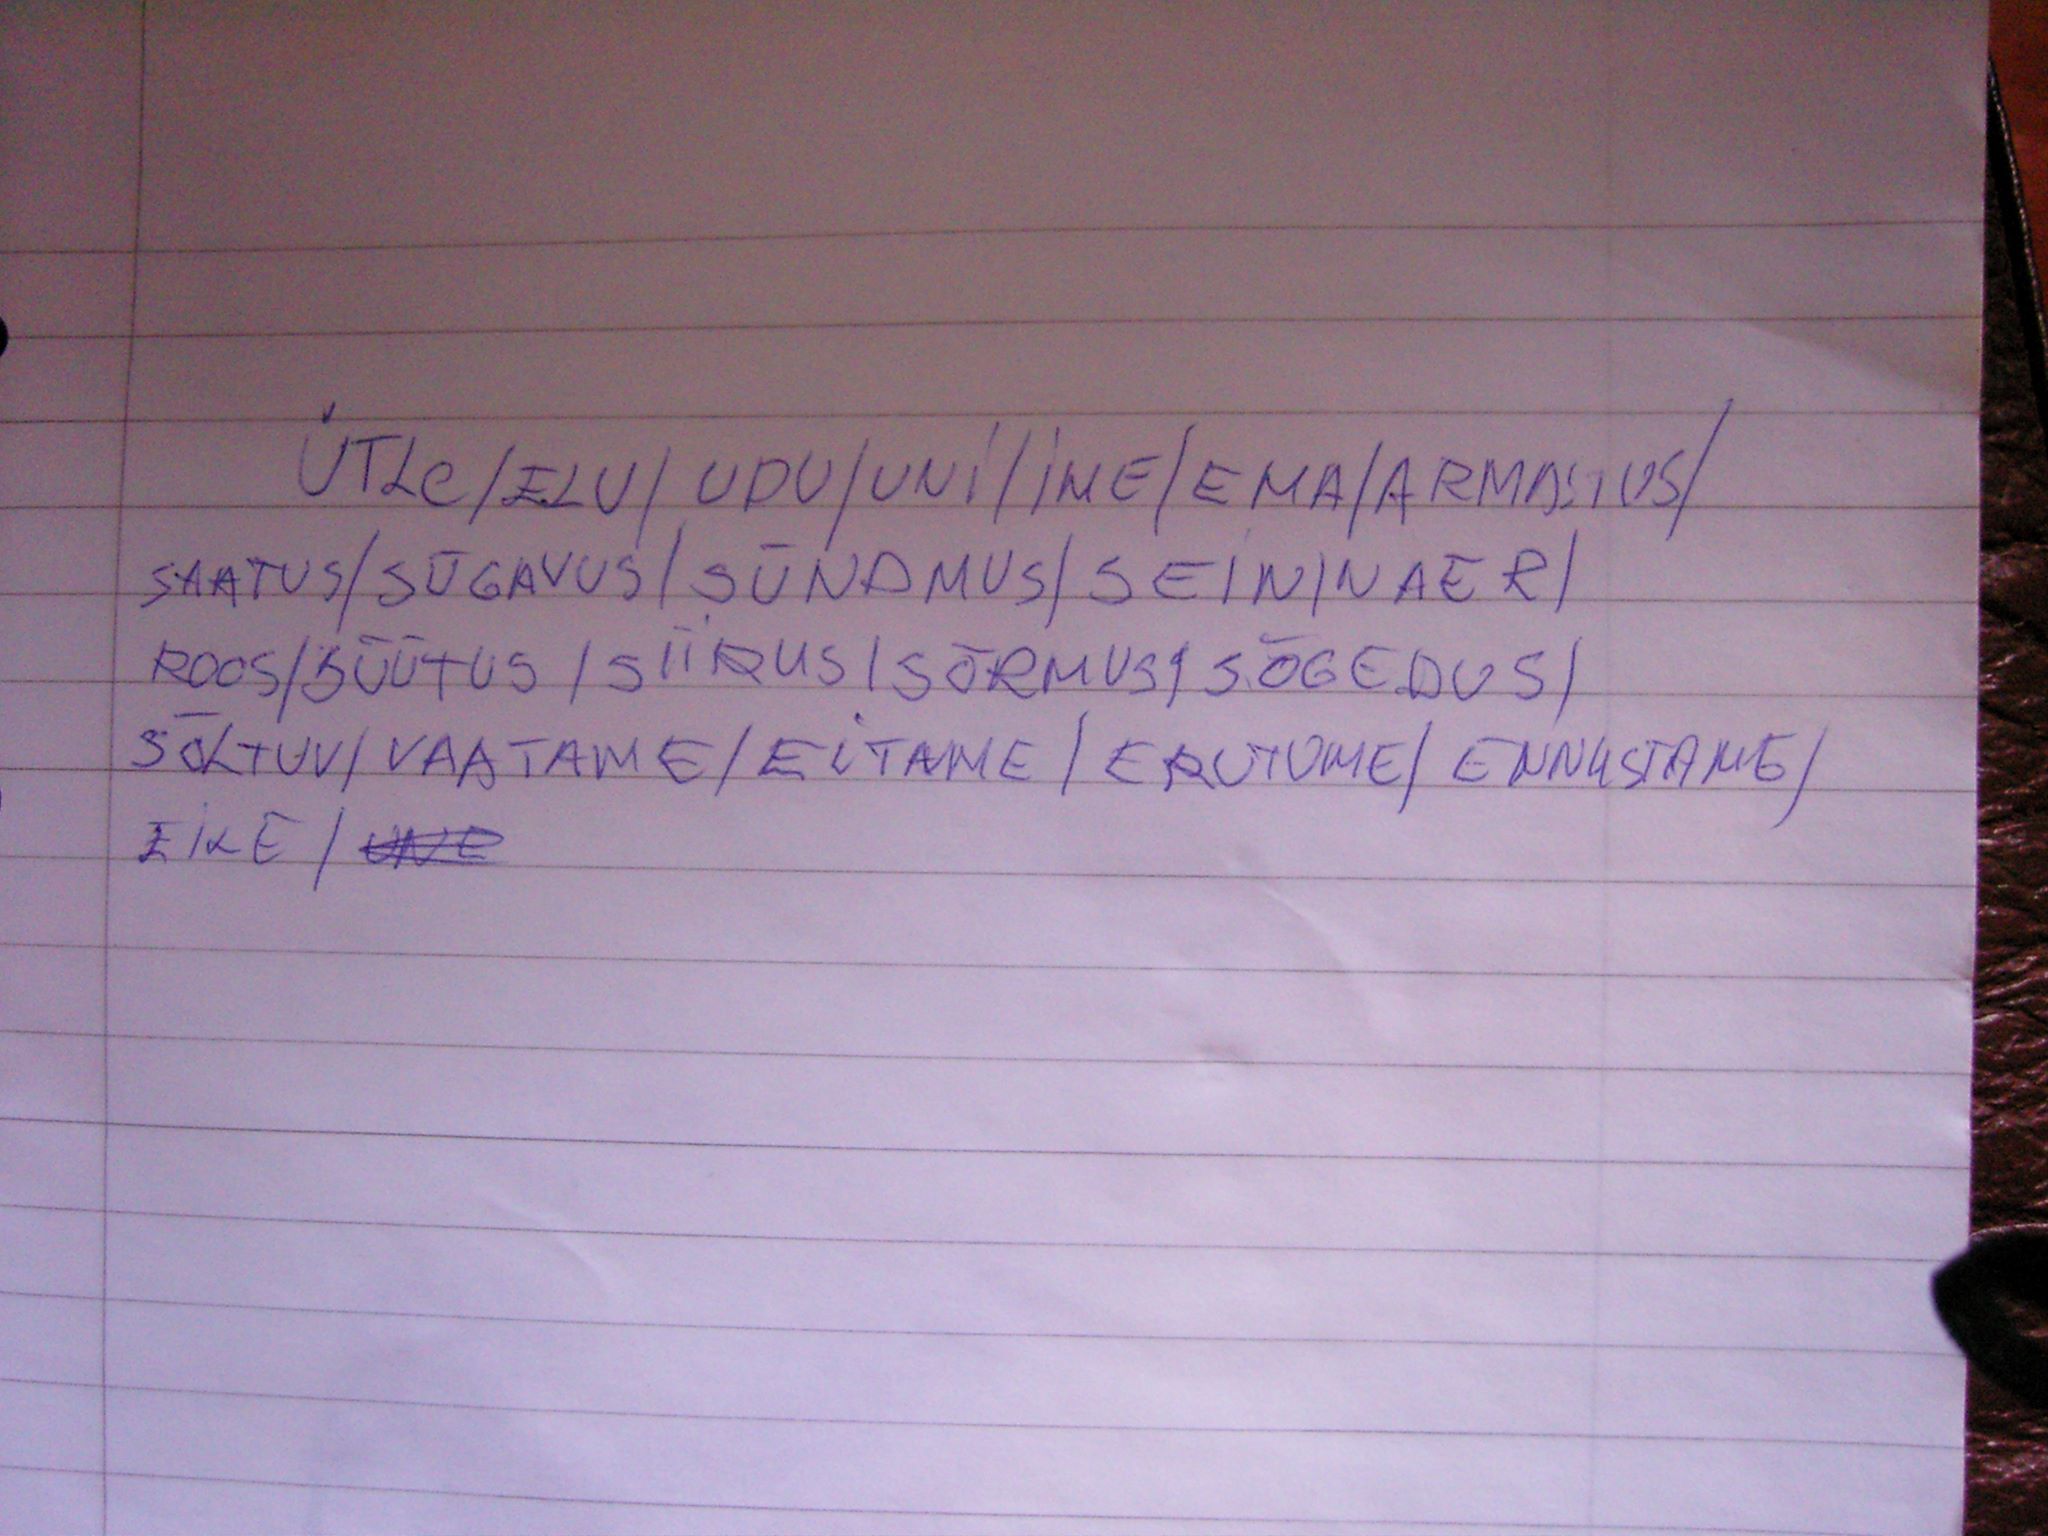 ÜTLE/ELU/UDU/UNI/IME/EMA/ARMASTUS/
SAATUS/SÜGAVUS/SÜNDMUS/SEIN/NAER/
ROOS/SÜÜTUS/SIIRUS/SÕRMUS/SÕGEDUS/
SÕLTUV/VAATAME/EITAME/ERUTUME/ENNUSTAME/
EIKE/